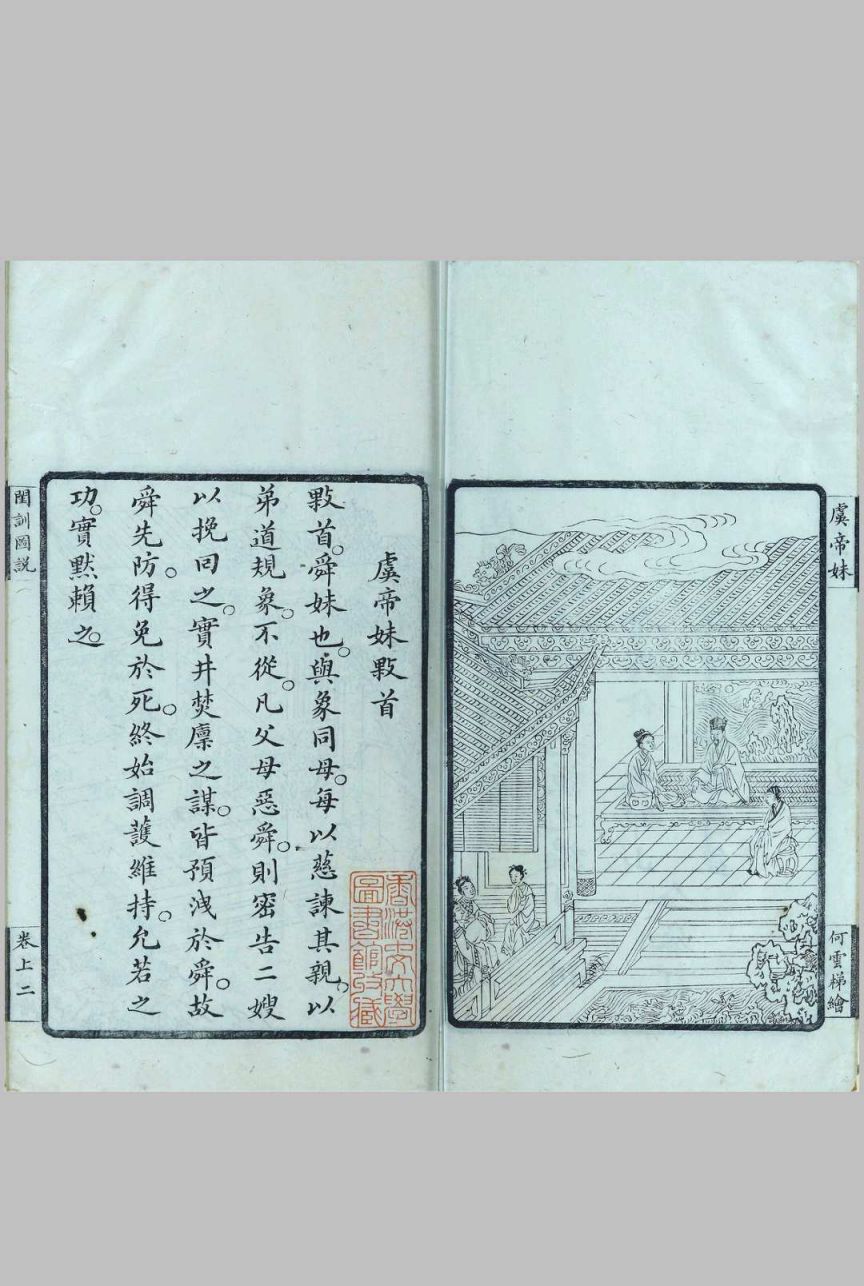 虞帝妹
何雲梯繪
虞帝妹敤首
敤首。舜妹也。與象同母。每以慈諫其親。以
弟道規象。不從。凡父母惡舜。則密告二嫂
以挽回之。實井焚廩之謀。皆預洩於舜。故
舜先防。得免於死。終始調護維持。允若之
功。實默賴之。
香港中文大學
圖書館收藏
閨訓圖說
卷上二